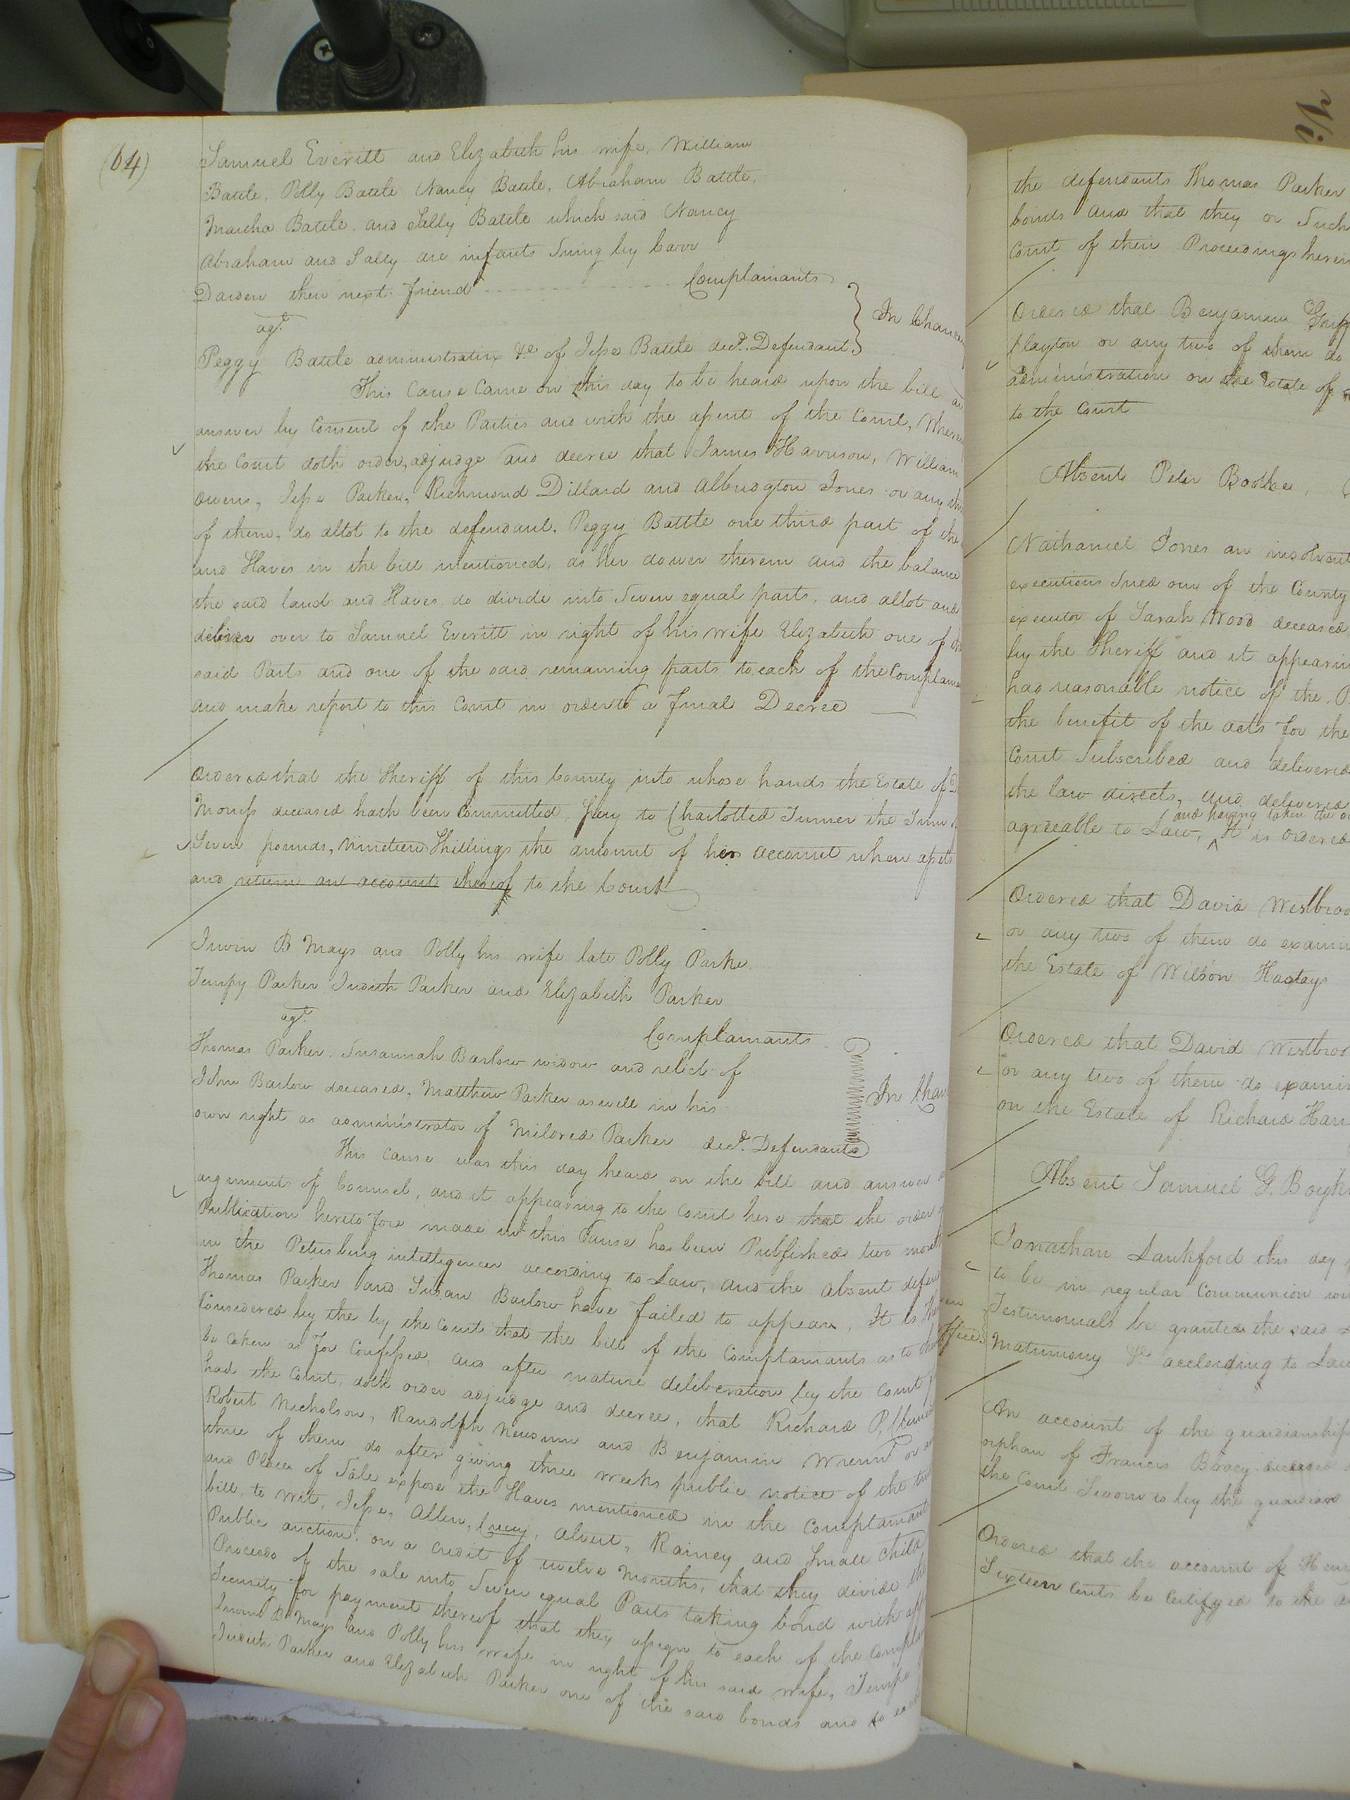 (64)
Samuel Everitt and Elizabeth his wife, William
Battle, Polly Battle Nancy Battle, Abraham Battle,
Martha Battle, and Sally Battle which said Nancy
Abraham and Sally are infants suing by Carr
Darden their next friend Complainants
agt.
In Chancery
Peggy Battle administratrix &c of Jesse Battle decd. Defendant
This Cause Came on this day to be heard upon the bill and
answer by Consent of the Parties and with the assent of the Court, Whereupon
the Court doth order, adjudge and decree that James Harrison, William
Owens, Jesse Parker, Richmond Dillard and Albridgton Jones or any
of them, do allot to the defendant, Peggy Battle one third part of the
and Slaves in the bill mentioned, as her dower therein and the balance
the said land and Slaves do divide into Seven equal parts, and allot and
deliver over to Samuel Everitt in right of his wife Elizabeth one of
said Parts and one of the said remaining parts to each of the Complain
and make report to this Court in order to a final Decree
Ordered that the Sheriff of this County into whose hands the Estate of
deceased hath been Committed, pay to Charlotted Turner the Sum
Seven pounds, Nineteen Shillings the amount of her account when assets
and return an account thereof to the Court
Irwin B Mays and Polly his wife late Polly Parker
Tempy Parker Judith Parker and Elizabeth Parker
agt.
Complainants
Thomas Parker, Susannah Barlow widow and relict of
John Barlow deceased, Matthew Parker as well in his
In Chan
own right as administrator of Mildred Parker decd. Defendants
This cause was this day heard on the bill and answer
arguments of Counsel, and it appearing to the Court here that the order
Publication heretofore made in this Cause has been Published two months
in the Petersburg intelligencer according to Law, and the absent defen
Thomas Parker and Susan Barlow have failed to appear, It is
Considered by the by the Court that the bill of the Complainants as to them
be taken as for Confessed, and after mature deliberation by the Court
had the Court, doth order adjudge and decree, that Richard P.
Robert Nicholson, Randolph Newsum and Benjamin Wrenn or
three of them do after giving three weeks public notice of the time
and Place of Sale expose the Slaves mentioned in the Complainants
bill, to wit, Jesse, Allen, Lucy, Albert, Rainey and Small child
Public auction, on a Credit of twelve Months, that they divide the
Proceeds of the sale into Seven equal Parts taking bond with
Security for payment thereof that they assign to each of the Compl
Irwin B Mays and Polly his wife in right of his said wife, Tempy
Judith Parker and Elizabeth Parker one of the said bonds and to
the defendants Thomas Parker
bonds and that they or Such
Court of their Proceedings herein
Ordered that Benjamin
Clayton or any two of them do
administration on the Estate of
to the Court
Absent Peter Boothe,
Nathaniel Jones an insolvent
executions Sued out of the County
executor of Sarah Wood deceased,
by the Sheriff and it appearing
had reasonable notice of the
the benefit of the acts for the
Court Subscribed and delivered
the law directs, and delivered
and having taken the
agreeable to Law, It is Ordered
Ordered that David Westbroo
or any two of them do examine
the Estate of Wilson
Ordered that David Westbroo
or any two of them do examin
on the Estate of Richard
Absent Samuel G. Boykin
Jonathan Lankford this day
to be in regular Communion
Testimonials be granted the said
matrimony &c according to Law
An account of the guardianship
orphan of Francis deceased
the Court Sworn to by the guardian
Ordered that the account of
Sixteen Cents be Certifyed to the